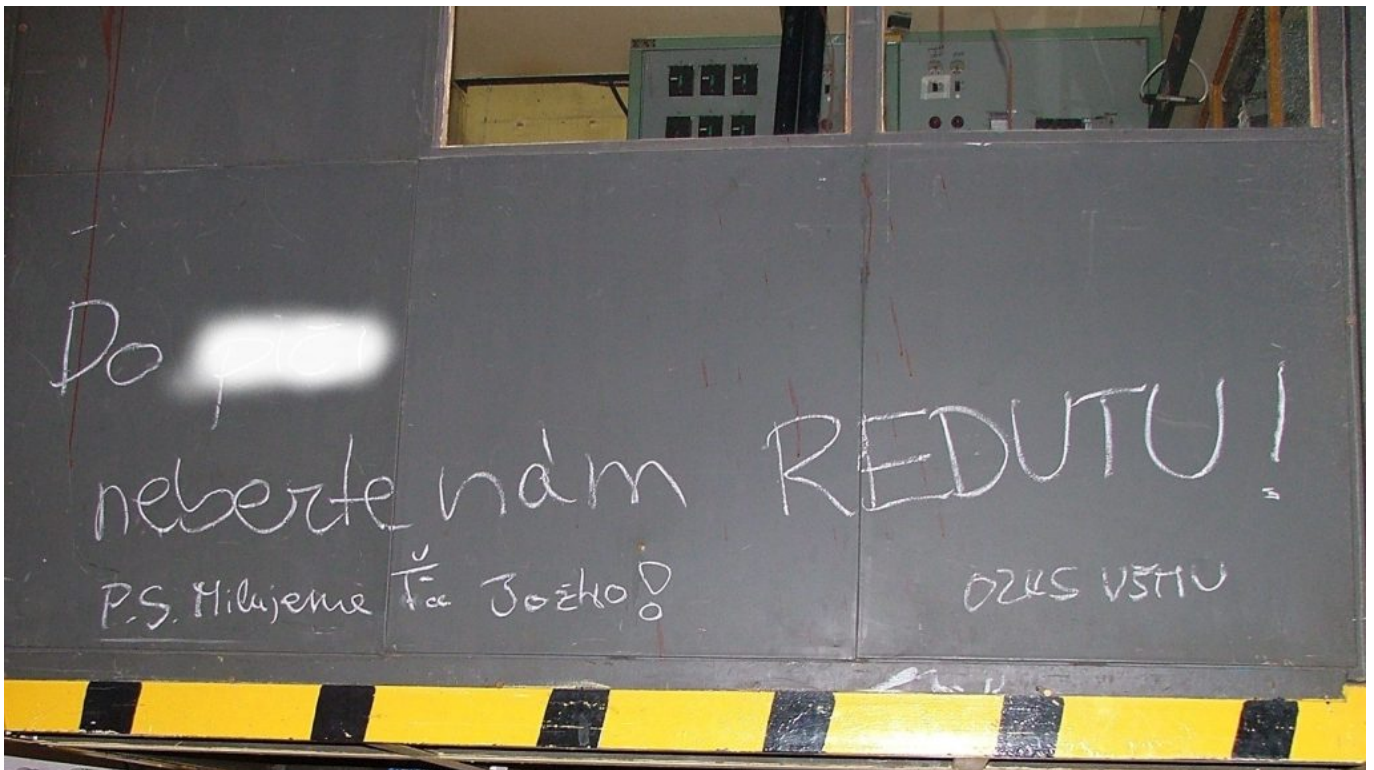 Do
neberte nám REDUTU!
P.S. Milujeme Ťa Jožko!
OZKS VŠMU